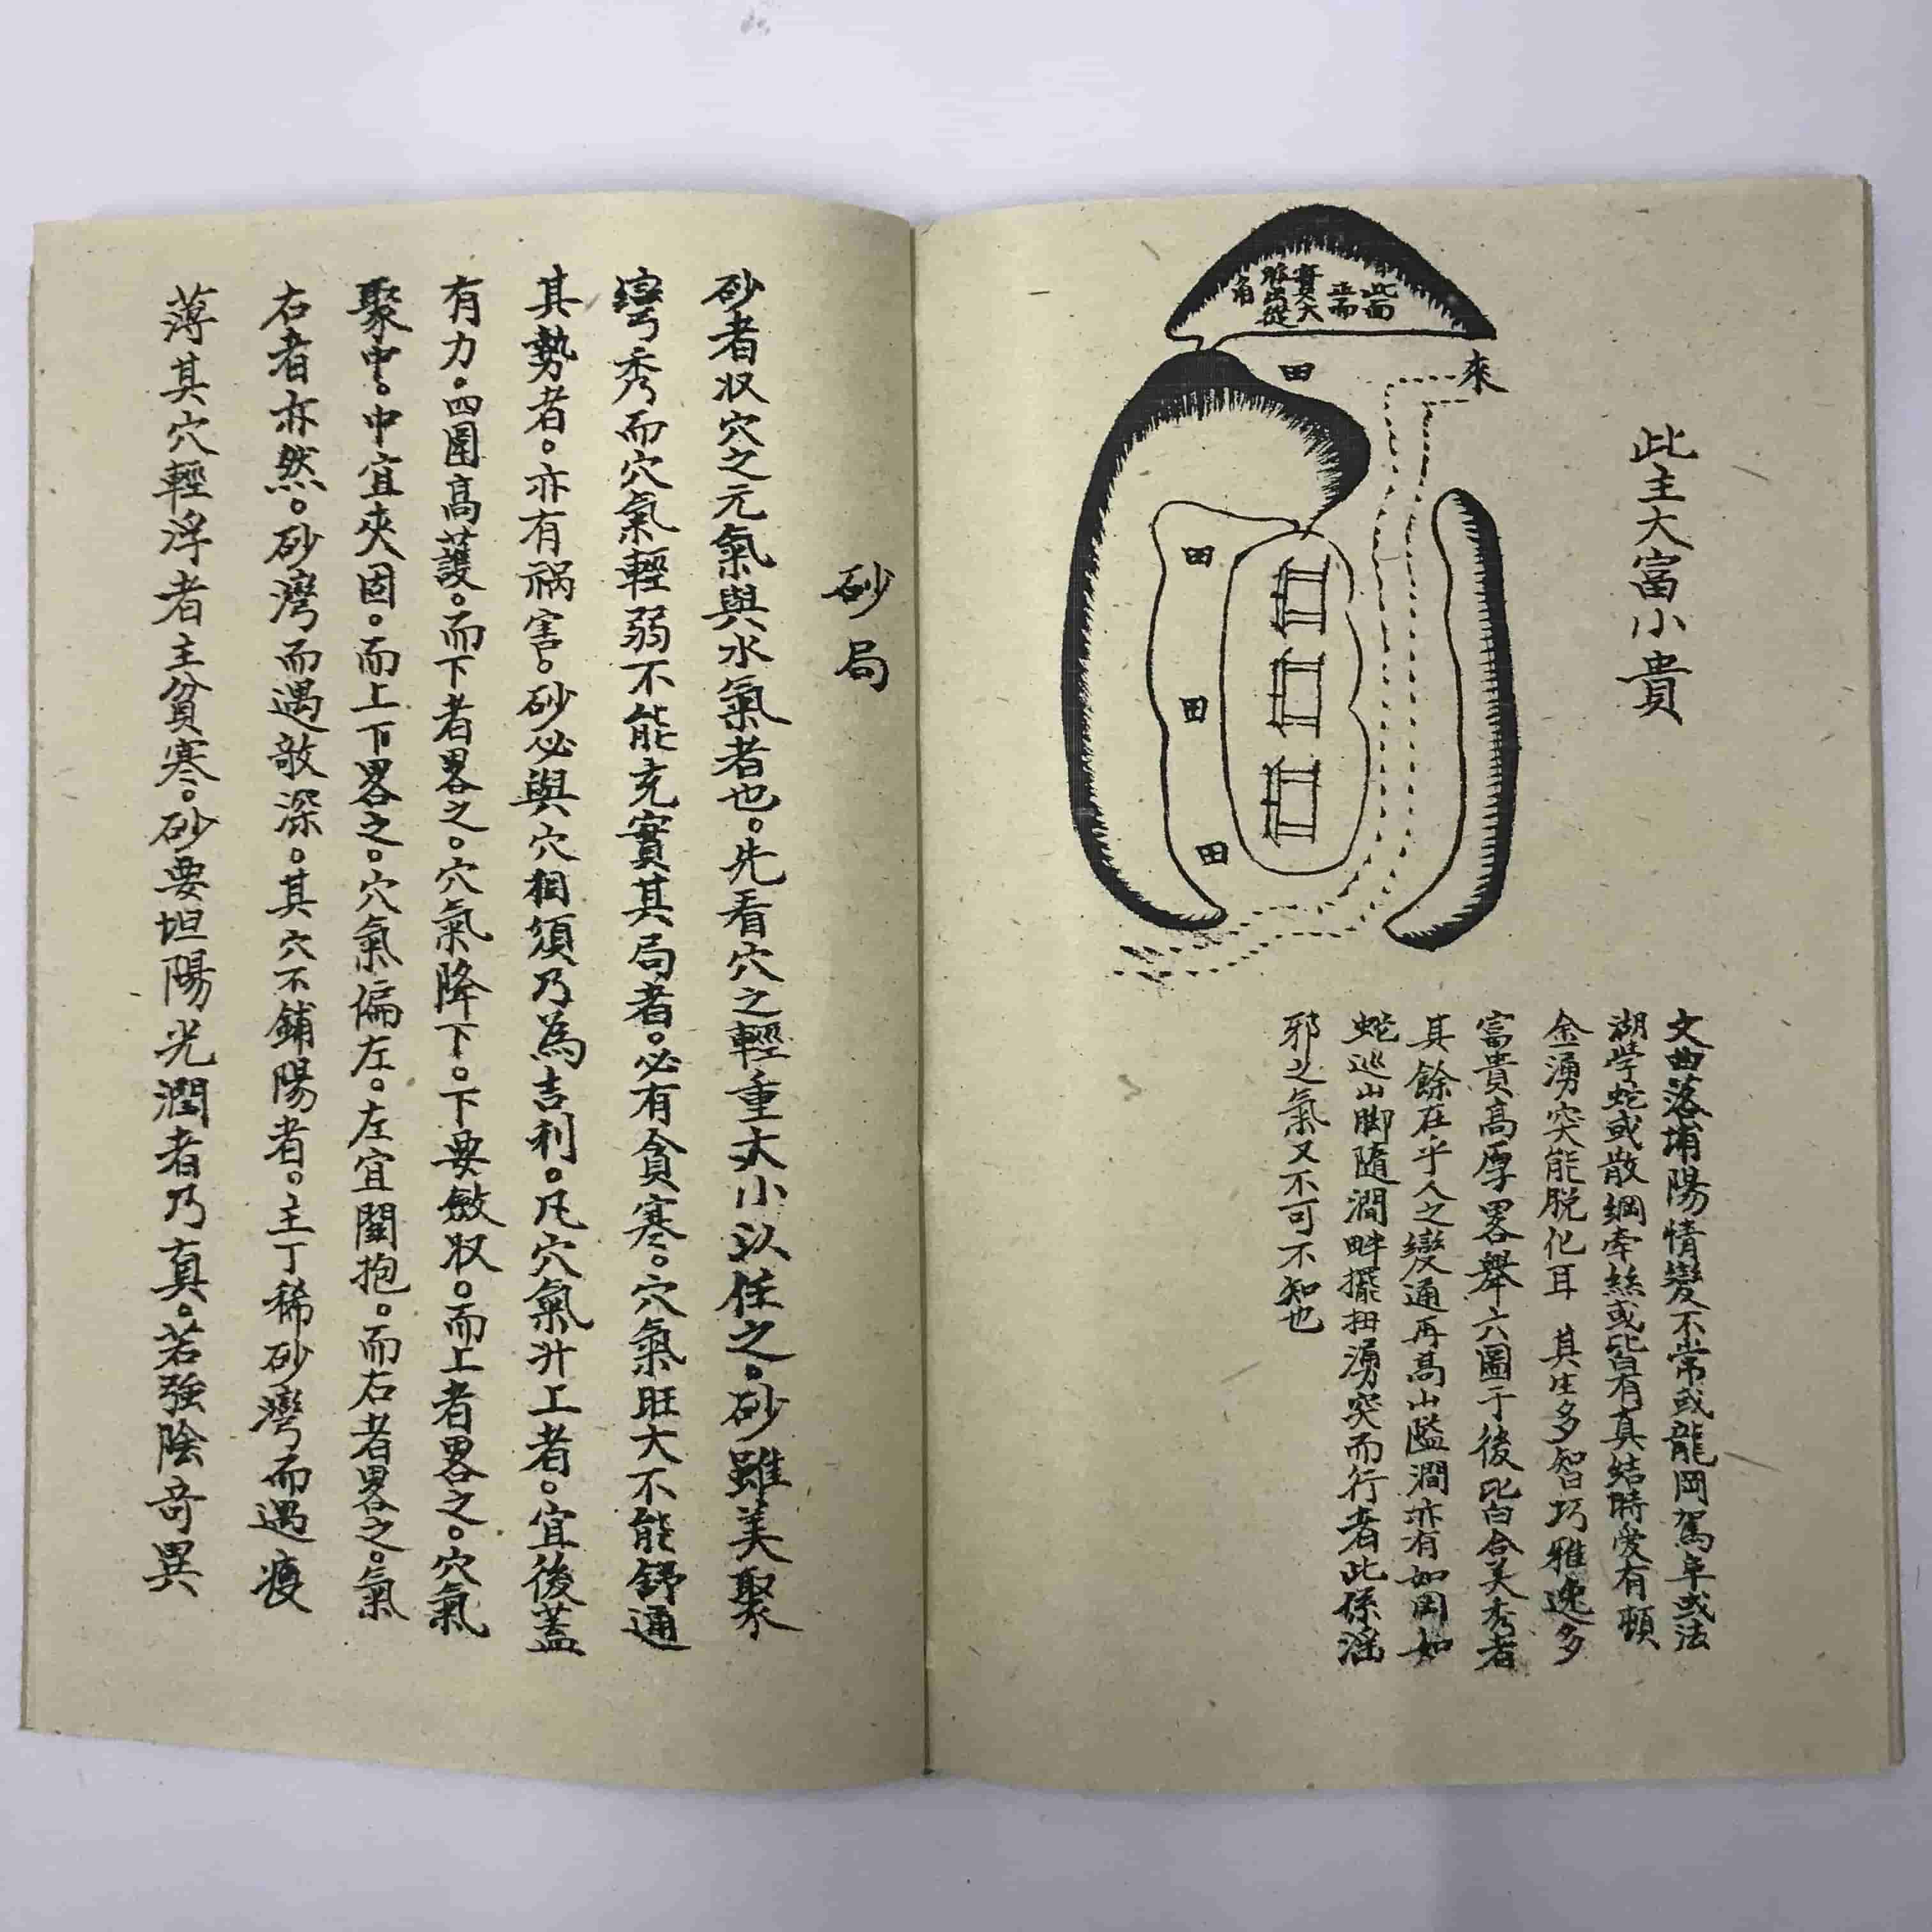 此主大富小貴
此面
正而
實大
脉出從
角
來
田
田
田
田
文曲落埔陽情變不常或龍岡駕阜或法
湖學蛇或散綱牽絲或皆有真結時愛有頓
金湧突能脱化耳 其生多智巧雅逸多
富貴高厚畧舉六圖于後皆合美秀者
其餘在乎人之變通再髙山隘澗亦有如岡如
蛇巡山脚隨澗畔擺扭湧突而行者此係滛
邪之氣又不可不知也
砂局
砂者収穴之元氣與水氣者也。先看穴之輕重大小以任之。砂雖美聚
灣秀而穴氣輕弱不能充實其局者。必有貪寒。穴氣旺大不能舒通
其勢者。亦有禍害。砂必與穴相須乃為吉利。凡穴氣升上者。宜後蓋
有力。四圍髙護。而下者畧之。穴氣降下。下要斂収。而上者畧之。穴氣
聚中。中宜夾固。而上下畧之。穴氣偏左。左宜關抱。而右者畧之。氣
右者亦然。砂灣而遇敵深。其穴不鋪陽者。主丁稀砂灣而遇瘦
薄其穴輕浮者主貧寒。砂要坦陽光潤者乃真。若強陰奇異